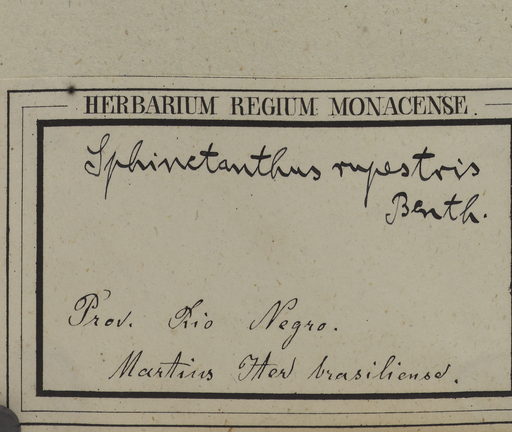 HERBARIUM REGIUM MONACENSE.
Sphinctanthus rupestris
Benth.
Prov. Rio Negro.
Martius Iter brasiliense.